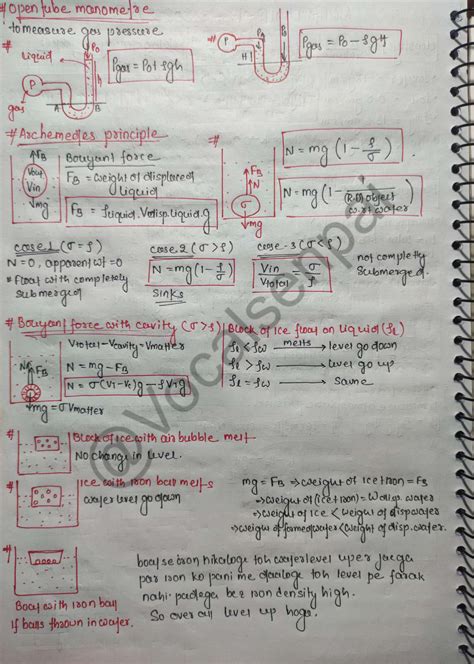 # Open tube manometre
to measure gas pressure
#
Liquid
P0
P
h
gas
A
B
Pgas = P0 + ρgh
P
P0
H
Pgas = P0 - ρgH
# Archemedies principle
↑FB
Vout
Vin
↓mg
Bouyant force
FB = weight of displaced
liquid
FB = ρliquid. Vdisp.liquid.g
FB
N
σ
↓mg
N = mg (1 - ρ/σ)
N = mg (1 - 1/(R.D) object
w.r.t water)
case 1 (σ = ρ)
N = 0, apparent wt = 0
* Float with completely
submerged
case 2 (σ > ρ)
N = mg (1 - ρ/σ)
Sinks
case - 3 (σ < ρ)
Vin/Vtotal = σ/ρ
not completly
Submerged.
# Bouyant force with cavity (σ > ρ)
N
FB
↓mg = σ Vmatter
Vtotal - Vcavity = Vmatter
N = mg - FB
N = σ(VT - VC)g - ρVTg
Block of ice float on liquid (ρL)
ρL < ρw melts → level go down
ρL > ρw → level go up
ρL = ρw → same
# Block of ice with air bubble melt
No change in level.
# Ice with iron ball melts
water level go down
mg = FB ⇒ weight of ice + iron = FB
⇒ weight of (ice + iron) = W disp. water
⇒ weight of ice < weight of disp water
⇒ weight of formed water < weight of disp. water.
#
Boat with iron ball
if balls thrown in water.
boat se iron nikaloge toh water level uper jaega
par iron ko pani me daaloge toh level pe farak
nahi padega bcz iron density high.
So over all level up hoga.
@Vocalsenpai